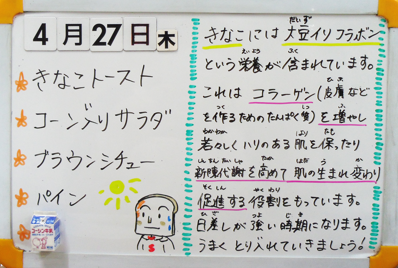 4月27日木
きなこトースト
コーンぶりサラダ
ブラウンシチュー
パイン
きなこには大豆イソフラボン
という栄養が含まれています。
これはコラーゲン(皮膚など
を作るためのたんぱく質)を増やし
若々しくハリのある肌を保ったり
新陳代謝を高めて肌の生まれ変わり
促進する役割をもっています。
日差しが強い時期になります。
うまくとりいれていきましょう!